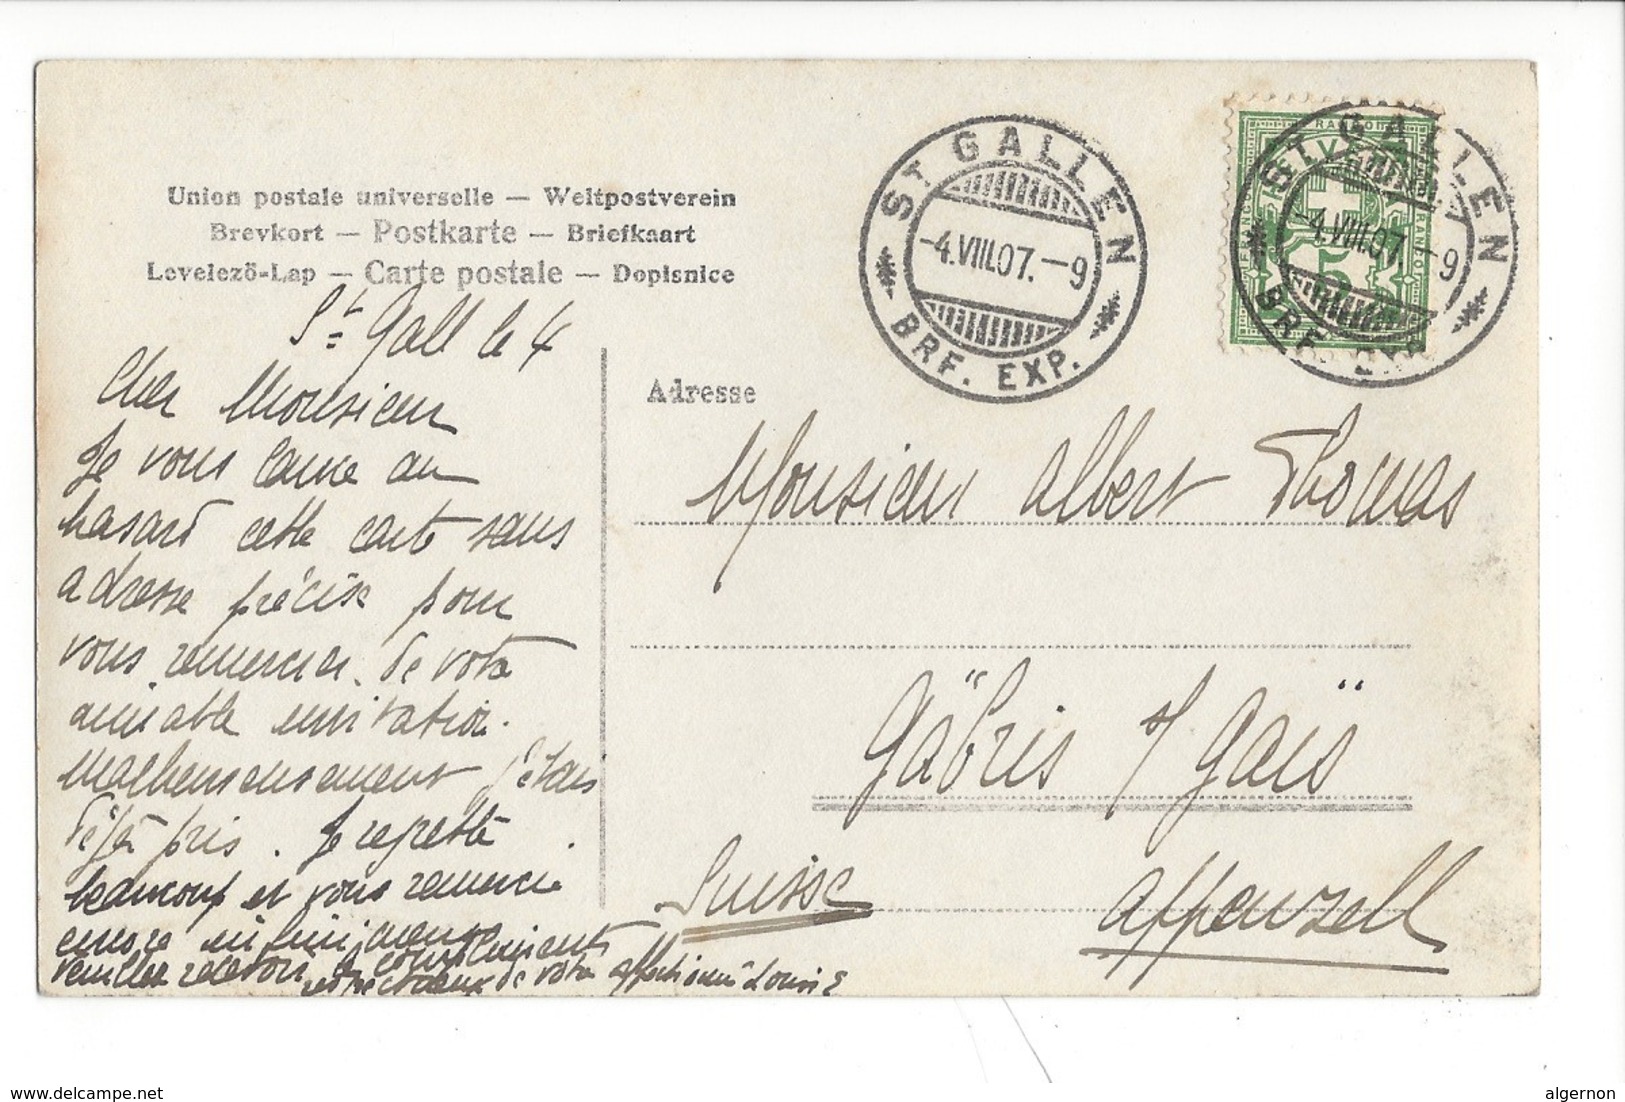 Union postale universelle — Weltpostverein
Brevkort — Postkarte — Briefkaart
Levelező-Lap — Carte postale — Dopisnice
St Gall le 4
Cher Monsieur
Je vous lance au
hasard cette carte sans
adresse précise pour
vous remercier de votre
aimable invitation.
Malheureusement j'étais
déjà pris. Je regrette
beaucoup et vous remercie
encore infiniment
veuillez recevoir les compliments
respectueux de votre affectionné Louis E
ST GALLEN
-4.VIII.07.-9
BRF. EXP.
ST GALLEN
-4.VIII.07.-9
BRF. EXP.
5
Adresse
Monsieur Albert Thomas
Gäbris s/ Gaïs
Suisse Appenzell
www.delcampe.net
algernon